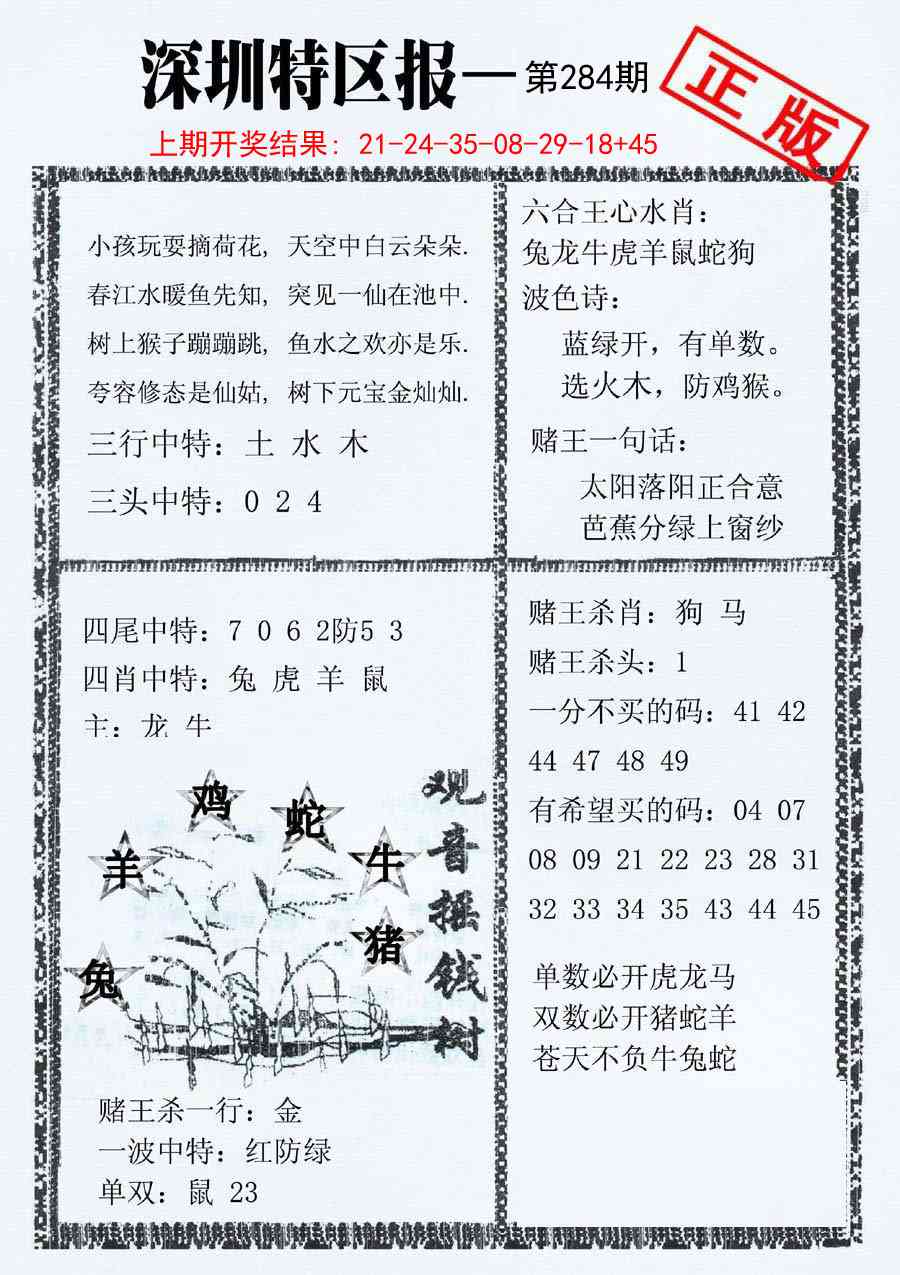 深圳特区报—第284期
正版
上期开奖结果: 21-24-35-08-29-18+45
小孩玩耍摘荷花, 天空中白云朵朵.
春江水暖鱼先知, 突见一仙在池中.
树上猴子蹦蹦跳, 鱼水之欢亦是乐.
夸容修态是仙姑, 树下元宝金灿灿.
三行中特: 土 水 木
三头中特: 0 2 4
六合王心水肖:
兔龙牛虎羊鼠蛇狗
波色诗:
蓝绿开, 有单数。
选火木, 防鸡猴。
赌王一句话:
太阳落阳正合意
芭蕉分绿上窗纱
四尾中特: 7 0 6 2防5 3
四肖中特: 兔 虎 羊 鼠
主: 龙 牛
鸡
蛇
羊
牛
猪
兔
观音摇钱树
赌王杀一行: 金
一波中特: 红防绿
单双: 鼠 23
赌王杀肖: 狗 马
赌王杀头: 1
一分不买的码: 41 42
44 47 48 49
有希望买的码: 04 07
08 09 21 22 23 28 31
32 33 34 35 43 44 45
单数必开虎龙马
双数必开猪蛇羊
苍天不负牛兔蛇